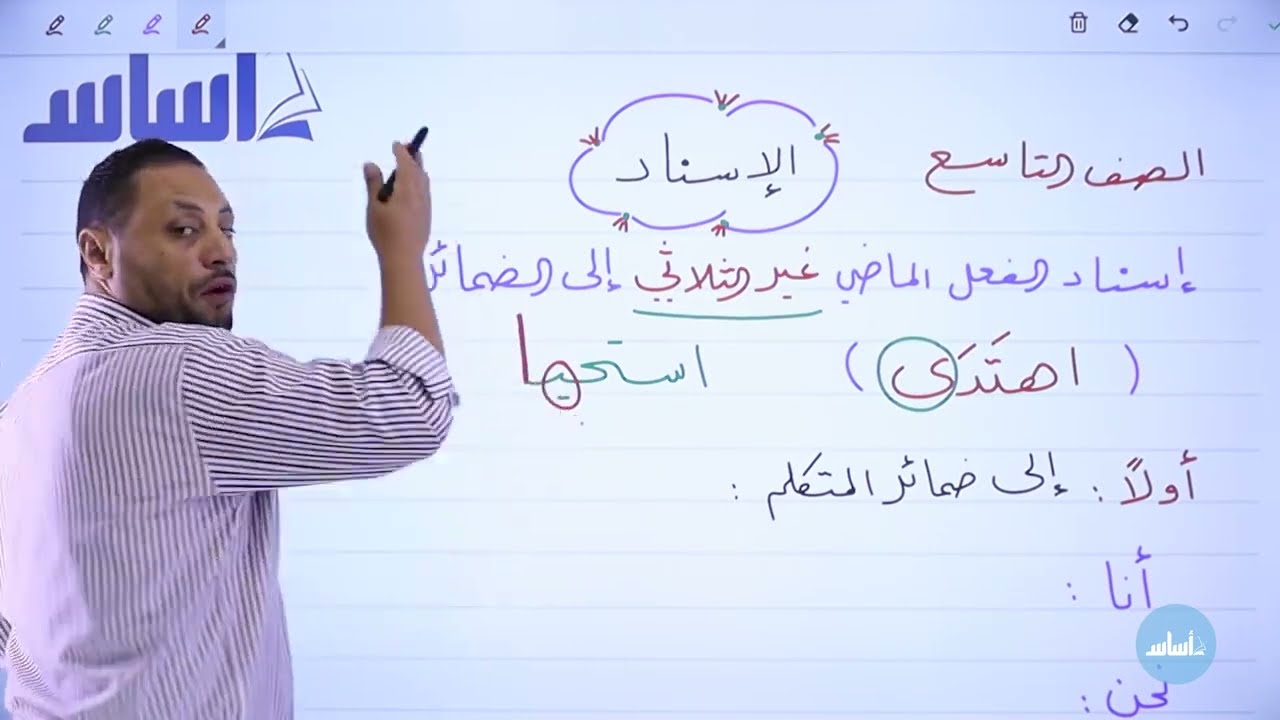 أساس
الإسناد
الصف التاسع
إسناد الفعل الماضي غير الثلاثي إلى الضمائر
( اهتَدَى ) استحيا
أولاً : إلى ضمائر المتكلم :
أنا :
أساس
نحن :